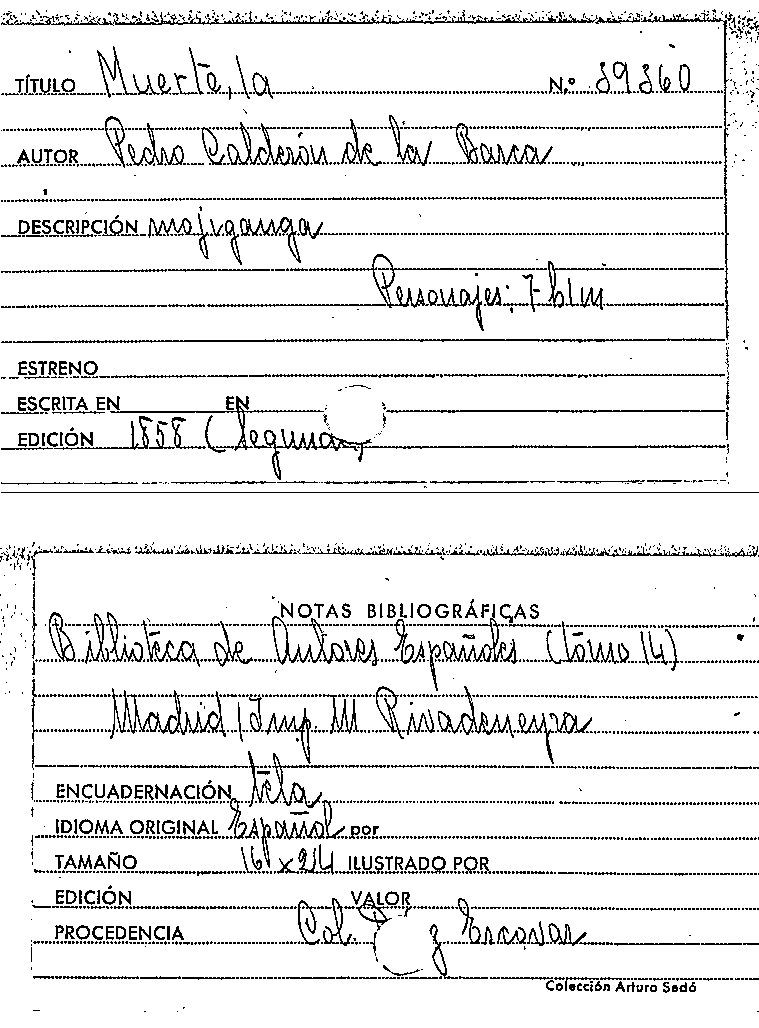 TÍTULO Muerte, la N.º 39360
AUTOR Pedro Calderón de la Barca
DESCRIPCIÓN mojiganga
Personajes: 7 h 1 m
ESTRENO
ESCRITA EN EN
EDICIÓN 1858 (Segunda)
NOTAS BIBLIOGRÁFICAS
Biblioteca de Autores Españoles (tomo 14)
Madrid / Imp. M Rivadeneyra
ENCUADERNACIÓN tela
IDIOMA ORIGINAL Español por
TAMAÑO 16 x 24 ILUSTRADO POR
EDICIÓN VALOR
PROCEDENCIA Col. z Escovar
Colección Arturo Sedó